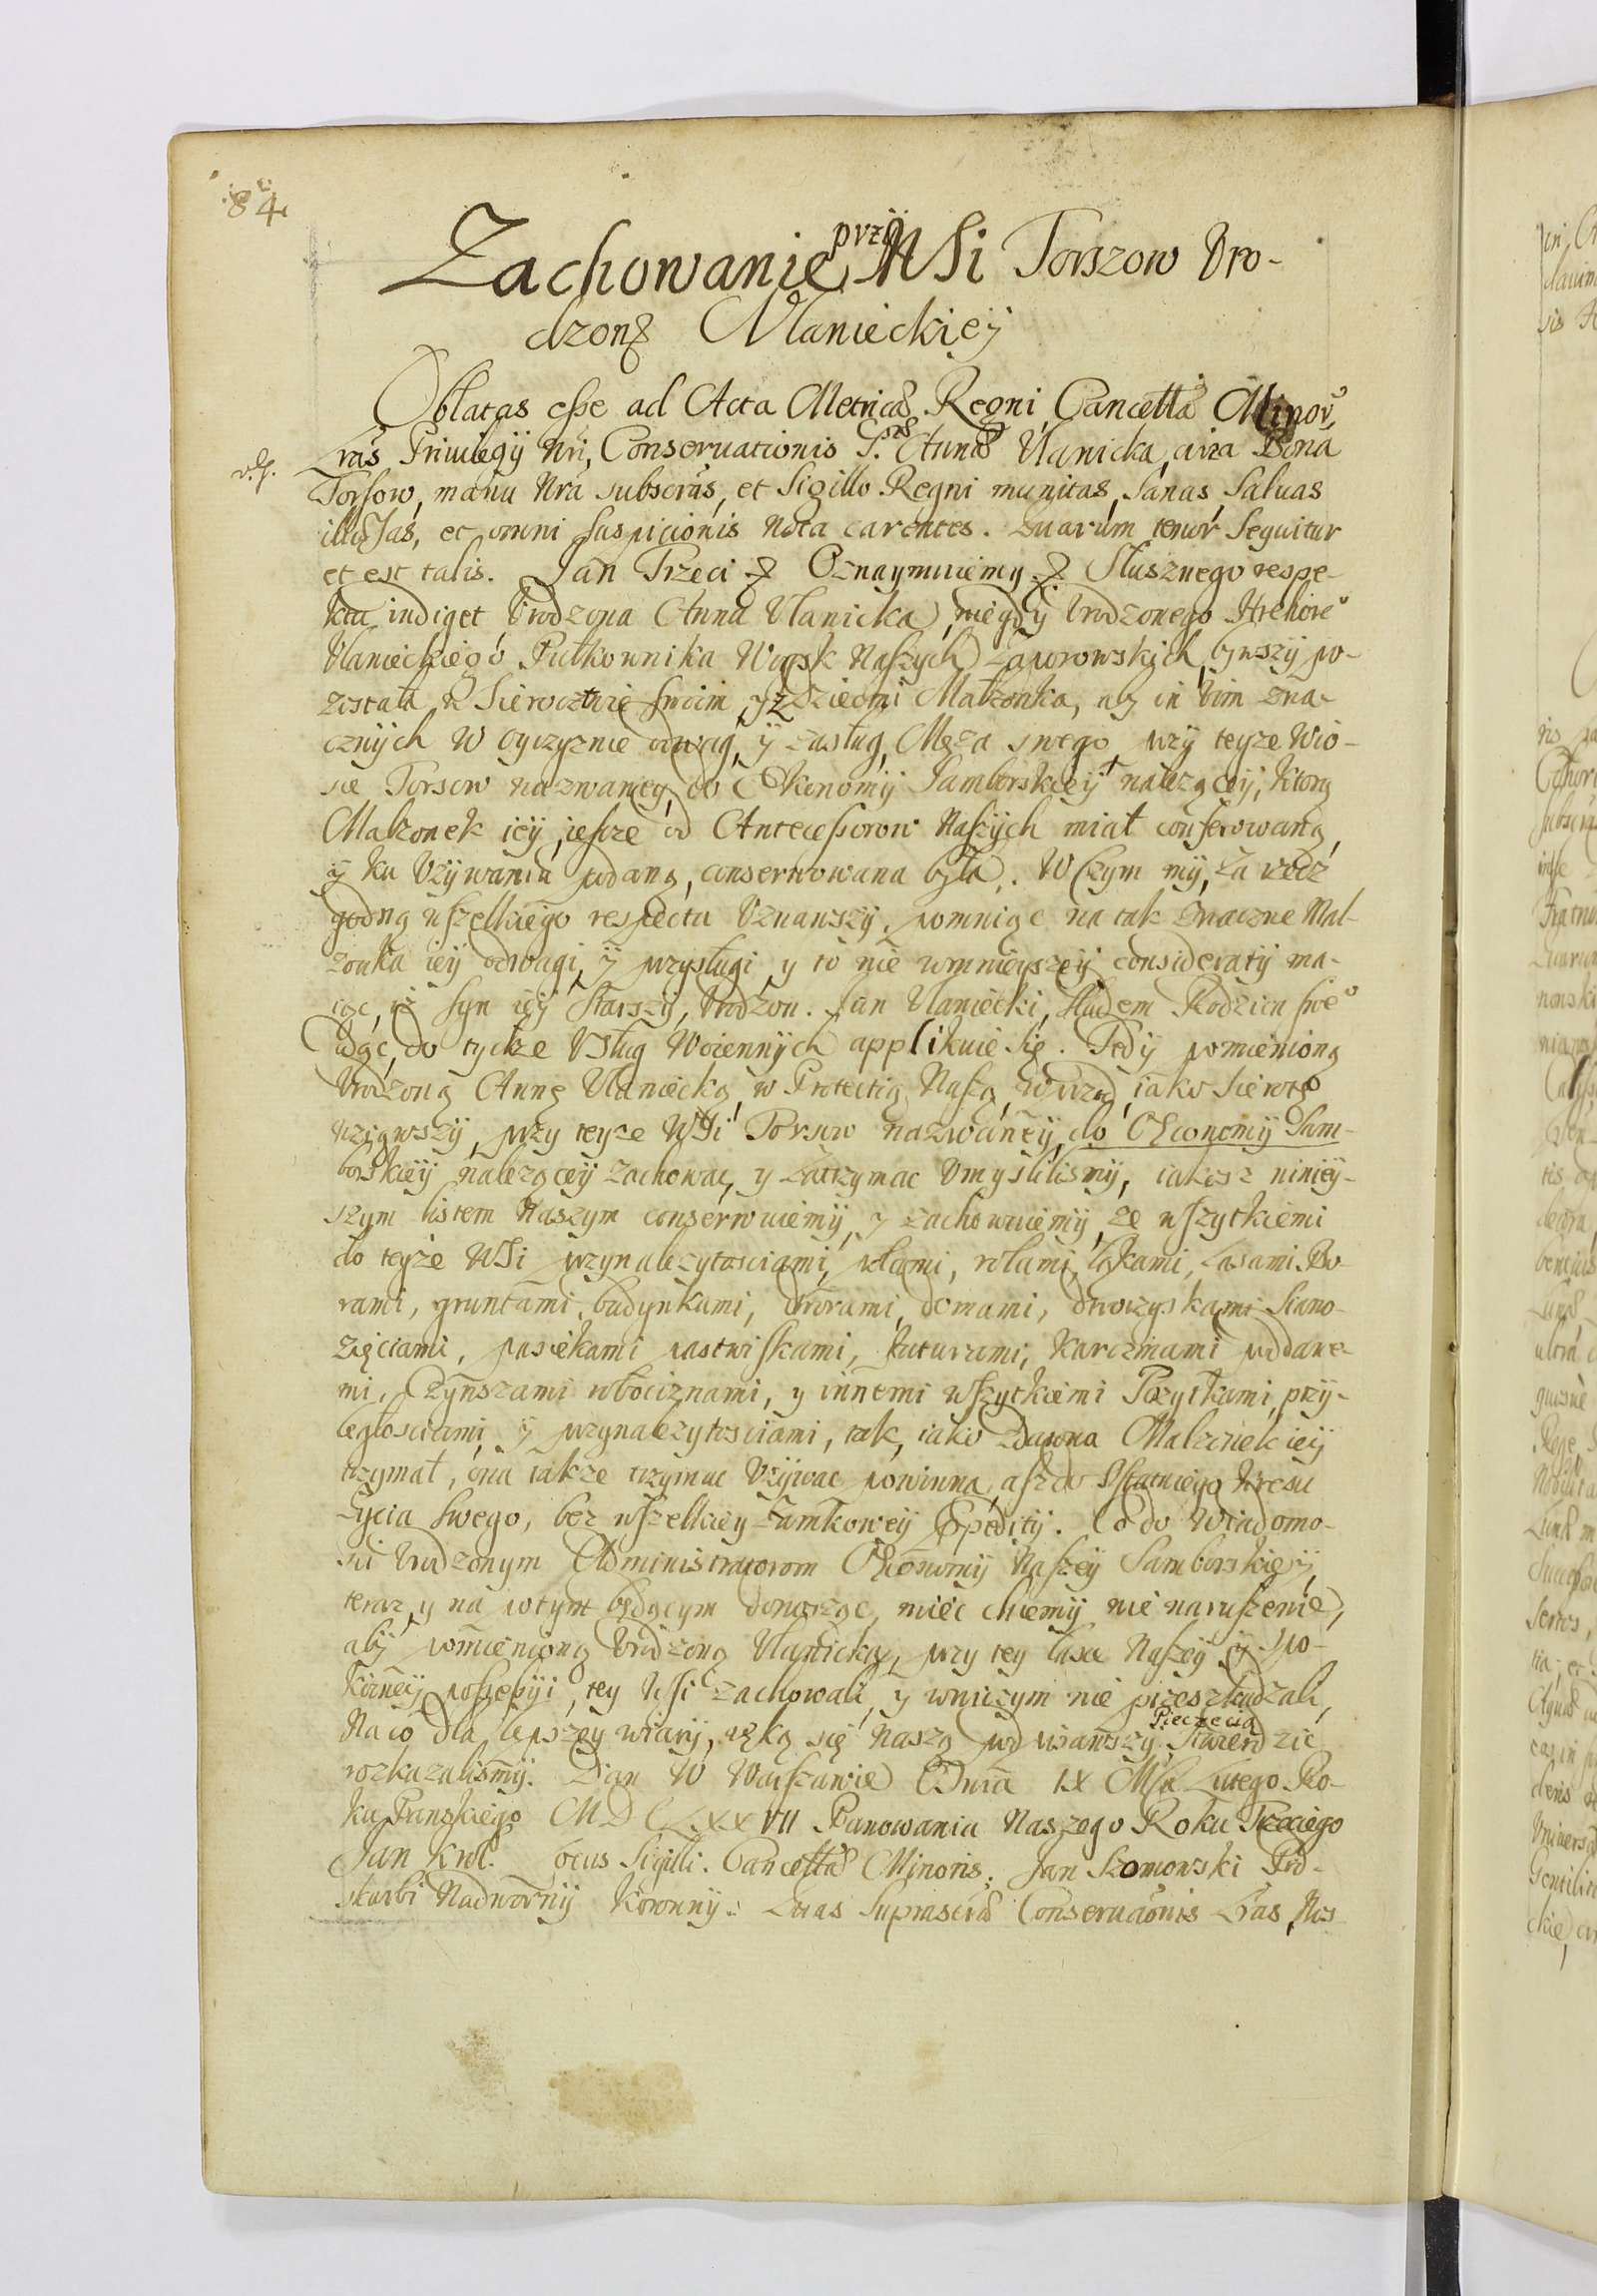 84
Zachowanie przÿ WSi Torszow Vro-
dzonę Vlanieckieÿ
Oblatas esse ad Acta Metricæ Regni Cancellæ Minor,
Lras Priuilegÿ Nri, Conservationis Gsæ Annæ Vlanicka, circa Bona
Torsow, manu Nra subscras, et Sigillo Regni munitas, Sanas Saluas
illæsas, et omni suspicionis nota carentes. Quarum tenor Sequitur
et est talis. Jan Trzeci Oznaymuiemy Słusznego respe-
ktu indiget Vrodzona Anna Vlanicka, niegdÿ Vrodzonego Hrehore°
Vlanieckiego Pułkownika Woysk Naszÿch Zaporowskich, bywszÿ po-
zostala w Sieroctwie swoim, y z Dziecmi Małzonka, aby in vim zna-
cznÿch w oyczyznie odwag, ÿ zasług Męza swego przÿ teyze Wio-
sce Torsow nazwaney, do Oekonomÿ Samborskieÿ nalezącÿ, ktorą
Małzonek ieÿ, ieszcze od Antecessorow Naszÿch miał conferowaną,
ÿ ku Vzÿwaniu podaną, conserwowana była. W Czym mÿ, za rzecz
godną wszelkiego respectu Vznawszÿ, pomniąc na tak znaczne Mał-
zonka ieÿ odwagi, ÿ przysługi, y to nie w mnieyszeÿ consideratÿ ma-
iąc, iż Syn ieÿ Starszÿ, Vrodzon. Jan Vlaniecki, śladem Rodzica swe°
idąc, do tychze Vsług Woiennÿch applikuie się. Tedÿ pomienioną
Vrodzoną Annę Vlaniecką w Protectią Naszą, iako Sierotę
wziąwszÿ, przy teyze WSi Torsow nazwaneÿ, do OEconomÿ Sam-
borskieÿ naleząceÿ zachowac, y zatrzymac Vmyslilismÿ, iakosz ninieÿ-
szym listem Naszym conserwuiemÿ, y zachowuiemÿ, ze wszytkiemi
do teyże WSi przynalezytosciami, polami, rolami, łąkami, Lasami, Bo-
rami, gruntami, budynkami, dworami, domami, dworzyskami Siano-
zięciami, pasiekami pastwiskami, futurami, Karczmami poddane-
mi, Czynszami włociznami, y innemi wszytkiemi Pozytkami, przÿ-
ległosciami, ÿ przynalezytosciami, tak, iako zdawna Małzonek ieÿ
trzymał, ona takze trzymac Vzÿwac powinna, asz do Ostatniego kresu
Zycia Swego, bez wszelkieÿ Zamkoweÿ Expeditÿ. Co do Wiadomo-
sci Vrodzonym Administratorom OEkonomÿ Naszeÿ Samborskieÿ,
teraz, y na potym będącym donosząc, miec chcemÿ nie naruszenie,
abÿ pomienioną Vrodzoną Vlanicką, przy tey łasce Naszeÿ ÿ spo-
kojneÿ possessÿi, tey WSi zachowali, y wniczym nie przeszkadzali,
Na co dla lepszey wiarÿ, ręką się Naszą podpisawszÿ, Pieczęcią stwierdzic
rozkazalismÿ. Dan W Warszawie Dnia IX Msca Lutego Ro-
ku Panskiego MDCLXXVII Panowania Naszego Roku Trzeciego
Jan Krol. Locus Sigilli. Cancellæ Minoris. Jan Szomowski Pod-
skarbi Nadwornÿ Koronnÿ. Quas Suprascrās Conservaōnis Lras, Nos